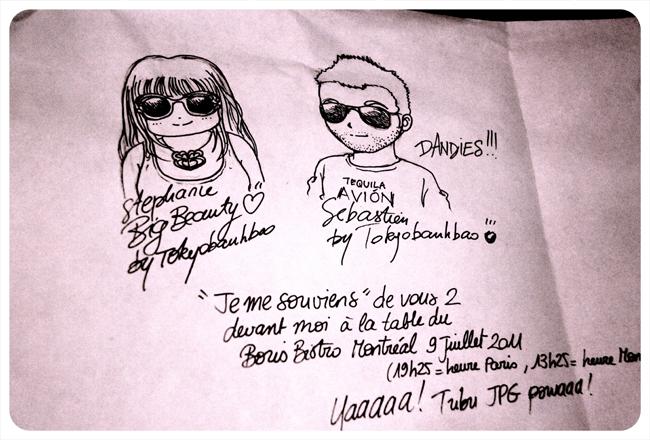 DANDIES!!!
TEQUILA
AVIÓN
Stephanie
Big Beauty
by Tokyobanhbao
Sebastien
by Tokyobanhbao
"Je me souviens" de vous 2
devant moi à la table du
Boris Bistro Montréal 9 Juillet 2011
(19h25 = heure Paris, 13h25 = heure Mon
Yaaaaa! Tubu JPG powaaa!